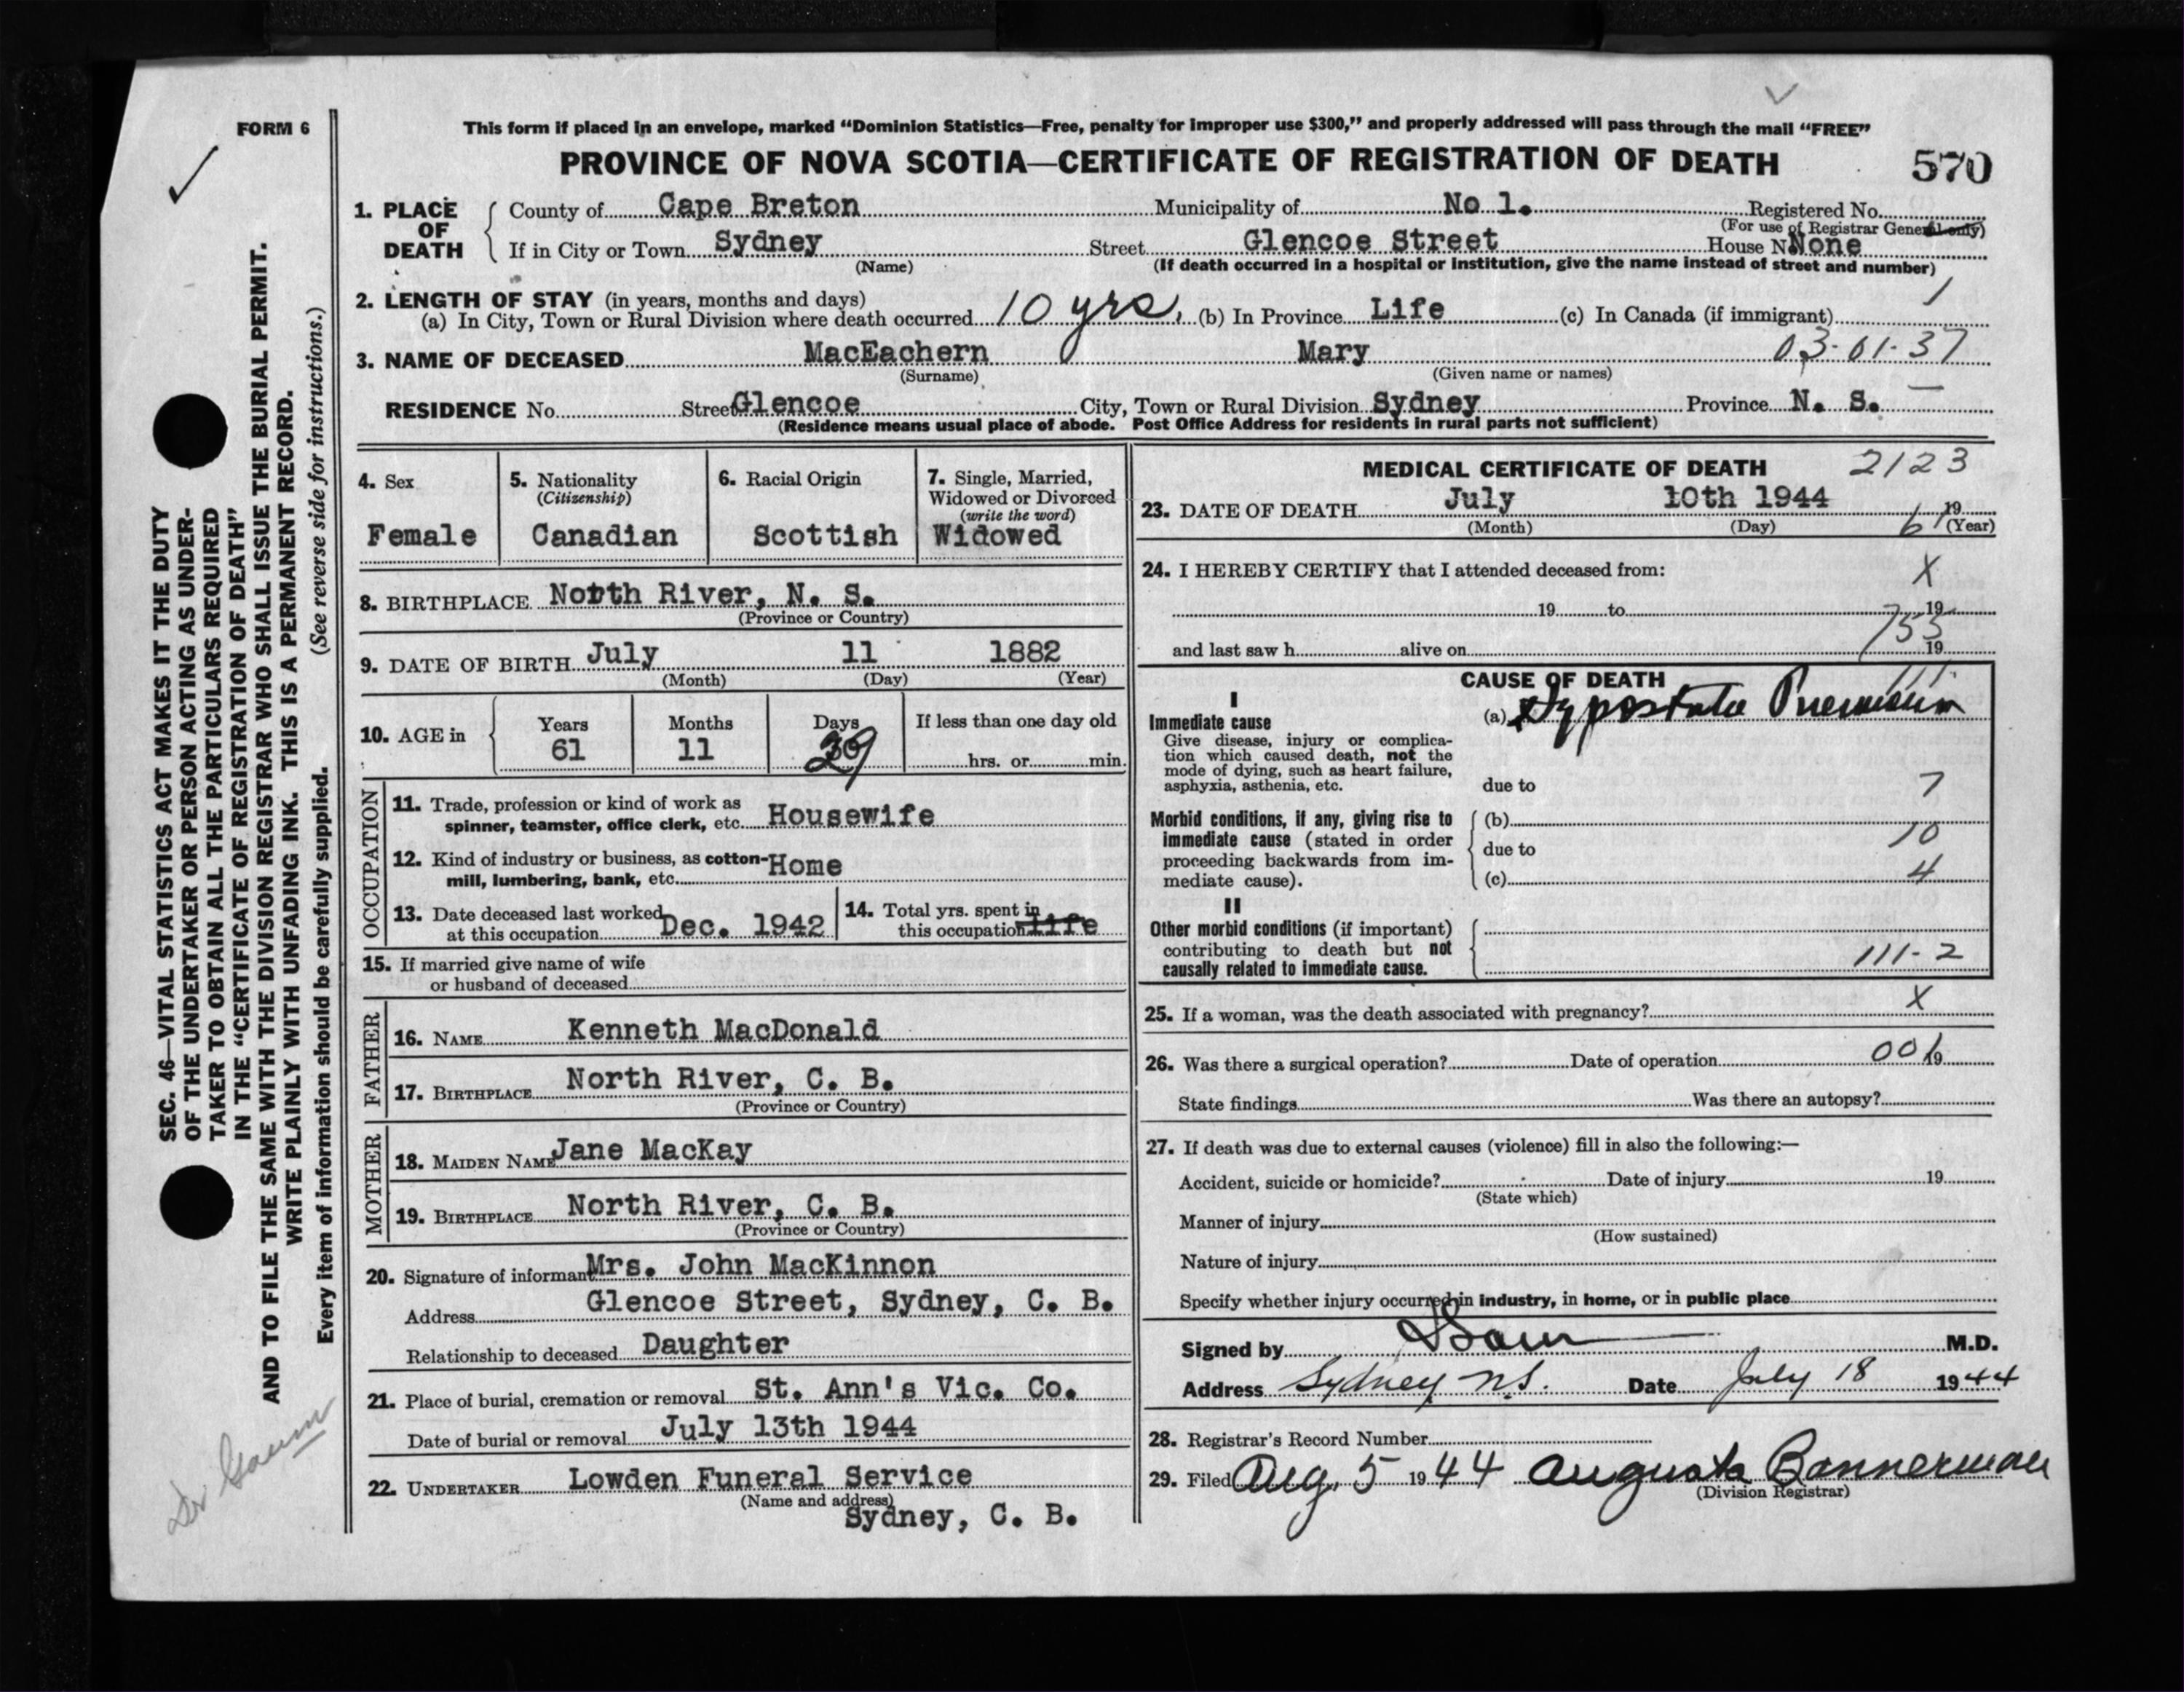 FORM 6
This form if placed in an envelope, marked "Dominion Statistics—Free, penalty for improper use $300," and properly addressed will pass through the mail "FREE"
PROVINCE OF NOVA SCOTIA—CERTIFICATE OF REGISTRATION OF DEATH 570
1. PLACE OF DEATH
County of Cape Breton Municipality of No 1. Registered No.
(For use of Registrar General only)
If in City or Town Sydney Street Glencoe Street House No None
(Name) (If death occurred in a hospital or institution, give the name instead of street and number)
2. LENGTH OF STAY (in years, months and days) 1
(a) In City, Town or Rural Division where death occurred 10 yrs. (b) In Province Life (c) In Canada (if immigrant)
3. NAME OF DECEASED MacEachern Mary 03-01-37
(Surname) (Given name or names)
RESIDENCE No. Street Glencoe City, Town or Rural Division Sydney Province N. S.
(Residence means usual place of abode. Post Office Address for residents in rural parts not sufficient)
4. Sex
Female
5. Nationality
(Citizenship)
Canadian
6. Racial Origin
Scottish
7. Single, Married,
Widowed or Divorced
(write the word)
Widowed
8. BIRTHPLACE North River, N. S.
(Province or Country)
9. DATE OF BIRTH July 11 1882
(Month) (Day) (Year)
10. AGE in Years Months Days If less than one day old
61 11 29 hrs. or min.
OCCUPATION
11. Trade, profession or kind of work as
spinner, teamster, office clerk, etc. Housewife
12. Kind of industry or business, as cotton-
mill, lumbering, bank, etc. Home
13. Date deceased last worked
at this occupation Dec. 1942
14. Total yrs. spent in
this occupation life
15. If married give name of wife
or husband of deceased
FATHER
16. NAME Kenneth MacDonald
17. BIRTHPLACE North River, C. B.
(Province or Country)
MOTHER
18. MAIDEN NAME Jane MacKay
19. BIRTHPLACE North River, C. B.
(Province or Country)
20. Signature of informant Mrs. John MacKinnon
Address Glencoe Street, Sydney, C. B.
Relationship to deceased Daughter
21. Place of burial, cremation or removal St. Ann's Vic. Co.
Date of burial or removal July 13th 1944
22. UNDERTAKER Lowden Funeral Service
(Name and address)
Sydney, C. B.
MEDICAL CERTIFICATE OF DEATH 2123
23. DATE OF DEATH July 10th 1944 19
(Month) (Day) 61 (Year)
24. I HEREBY CERTIFY that I attended deceased from: X
19 to 19
753
and last saw h alive on 19
CAUSE OF DEATH 111.
I
Immediate cause
Give disease, injury or complica-
tion which caused death, not the
mode of dying, such as heart failure,
asphyxia, asthenia, etc.
(a) Hypostatic Pneumonia
due to 7
Morbid conditions, if any, giving rise to
immediate cause (stated in order
proceeding backwards from im-
mediate cause).
(b)
due to 10
(c) 4
II
Other morbid conditions (if important)
contributing to death but not
causally related to immediate cause.
111-2
25. If a woman, was the death associated with pregnancy? X
26. Was there a surgical operation? Date of operation 001 19
State findings Was there an autopsy?
27. If death was due to external causes (violence) fill in also the following:—
Accident, suicide or homicide? Date of injury 19
(State which)
Manner of injury
(How sustained)
Nature of injury
Specify whether injury occurred in industry, in home, or in public place
Signed by M.D.
Address Sydney N.S. Date July 18 1944
28. Registrar's Record Number
29. Filed Aug. 5 1944 Augusta Bannerman
(Division Registrar)
SEC. 46—VITAL STATISTICS ACT MAKES IT THE DUTY
OF THE UNDERTAKER OR PERSON ACTING AS UNDER-
TAKER TO OBTAIN ALL THE PARTICULARS REQUIRED
IN THE "CERTIFICATE OF REGISTRATION OF DEATH"
AND TO FILE THE SAME WITH THE DIVISION REGISTRAR WHO SHALL ISSUE THE BURIAL PERMIT.
WRITE PLAINLY WITH UNFADING INK. THIS IS A PERMANENT RECORD.
Every item of information should be carefully supplied. (See reverse side for instructions.)
Dr